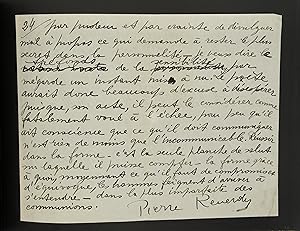 24 par pudeur et par crainte de divulguer
mal à propos ce qui demande à rester le plus
secret dans la personnalité, je veux dire le
profondeurs sensibilité
de la par
mégarde un instant mise à nu. Le poète
aurait donc beaucoup d'excuse à désespérer
puisque, son acte, il peut le considérer comme
fatalement voué à l'échec, pour peu qu'il
ait conscience que ce qu'il doit communiquer
n'est rien de moins que l'incommunicable. Réussir
dans la forme - c'est la seule planche de salut
sur laquelle il puisse compter - la forme grâce
à quoi, moyennant ce qu'il faut de compromission
d'équivoque, les hommes feignent d'arriver à
s'entendre - dans la plus imparfaite des
communions.
Pierre Reverdy